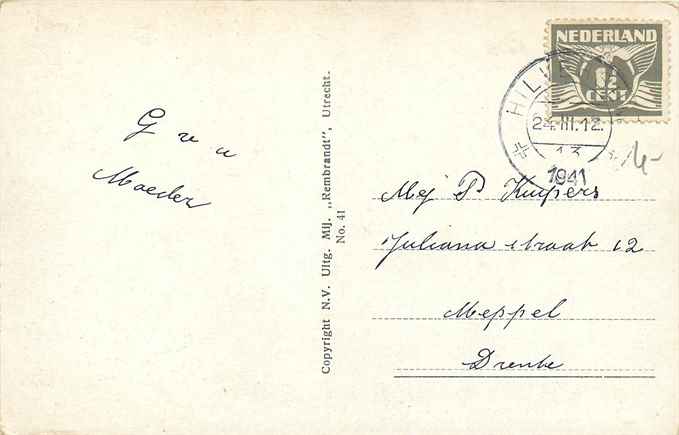 G v u
Moeder
Copyright N.V. Uitg. Mij. „Rembrandt”, Utrecht.
No. 41
NEDERLAND
1½
CENT
24.III.12.
13
1941
4-
Mej P Kuipers
Juliana straat 12
Meppel
Drente